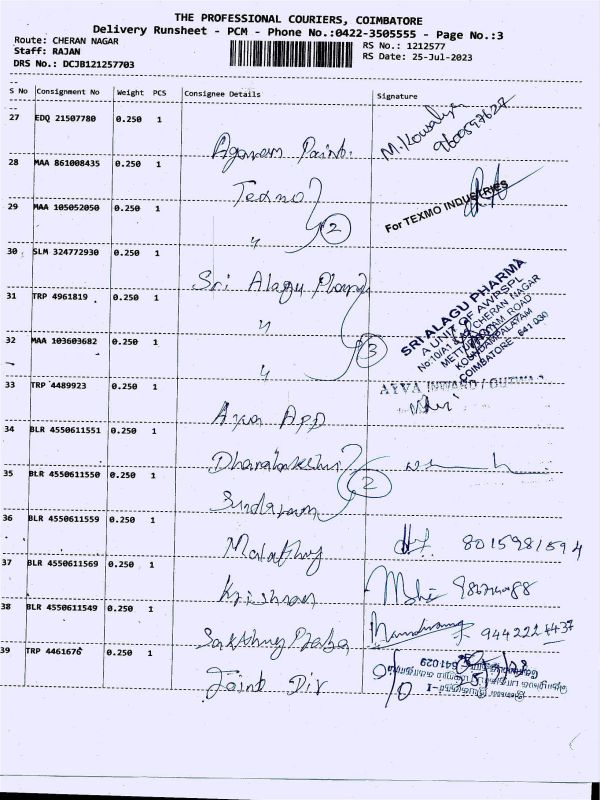 THE PROFESSIONAL COURIERS, COIMBATORE
Delivery Runsheet - PCM - Phone No.:0422-3505555 - Page No.:3
Route: CHERAN NAGAR
Staff: RAJAN
DRS No.: DCJB121257703
RS No.: 1212577
RS Date: 25-Jul-2023
S No Consignment No Weight PCS Consignee Details Signature
27 EDQ 21507780 0.250 1
Agaram Paints. M. Kowsalya
28 MAA 861008435 0.250 1
Texmo For TEXMO INDUSTRIES
29 MAA 105052050 0.250 1
" 2
30 SLM 324772930 0.250 1
Sri Alagu Pharma
31 TRP 4961819 0.250 1
"
SRI ALAGU PHARMA
A UNIT OF AWRSPL
CHERAN NAGAR
METTUPALAYAM ROAD
KOUNDAMPALAYAM
COIMBATORE - 641 030
32 MAA 103603682 0.250 1
" 3
33 TRP 4489923 0.250 1
AYVA INWARD / OUTWARD
34 BLR 4550611551 0.250 1
35 BLR 4550611550 0.250 1
2
Sundaram
36 BLR 4550611559 0.250 1
Malathy 8015981594
37 BLR 4550611569 0.250 1
Krishnan
38 BLR 4550611549 0.250 1
39 TRP 4461676 0.250 1
Joint Dir
641029